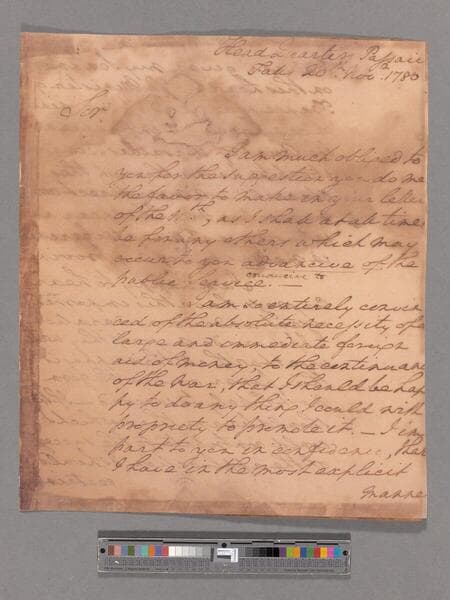 Head Quarters Passaic
Falls 20th Novr 1780
Sir
I am much obliged to
you for the Suggestion you do me
the favor to make in your letter
of the, as I shall at all times
be for any others which may
occur to you advancive of the
conducive to
public Service. —
I am so entirely convin
ced of the absolute necessity of a
large and immediate foreign
aid of money, to the continuance
of the War, that I should be hap
py to do any thing I could with
propriety to promote it. — I im
part to you in confidence, that
I have in the most explicit
manne